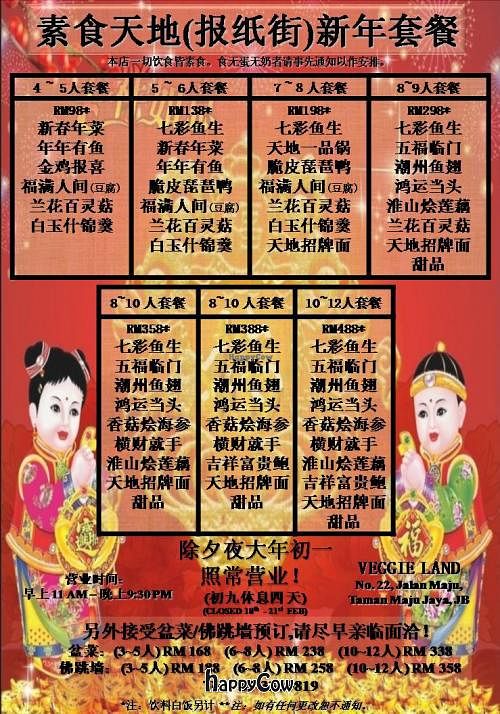 素食天地(报纸街)新年套餐
本店一切饮食皆素食。食无蛋无奶者请事先通知以作安排。
4 ~ 5人套餐
RM98*
新春年菜
年年有鱼
金鸡报喜
福满人间(豆腐)
兰花百灵菇
白玉什锦羹
5 ~ 6人套餐
RM138*
七彩鱼生
新春年菜
年年有鱼
脆皮琵琶鸭
福满人间(豆腐)
兰花百灵菇
白玉什锦羹
7~8人套餐
RM198*
七彩鱼生
天地一品锅
脆皮琵琶鸭
福满人间(豆腐)
兰花百灵菇
天地招牌面
8~9人套餐
RM298*
七彩鱼生
五福临门
潮州鱼翅
鸿运当头
淮山烩莲藕
兰花百灵菇
天地招牌面
甜品
8~10人套餐
RM358*
七彩鱼生
五福临门
潮州鱼翅
鸿运当头
香菇烩海参
横财就手
淮山烩莲藕
天地招牌面
甜品
8~10人套餐
RM388*
七彩鱼生
五福临门
潮州鱼翅
鸿运当头
香菇烩海参
横财就手
吉祥富贵鲍
天地招牌面
甜品
10~12人套餐
RM488*
七彩鱼生
五福临门
潮州鱼翅
鸿运当头
香菇烩海参
横财就手
淮山烩莲藕
吉祥富贵鲍
天地招牌面
甜品
HappyCow
福
除夕夜大年初一
照常营业!
(初九休息四天)
(CLOSED 18th - 21st FEB)
营业时间:
早上11AM – 晚上9:30PM
VEGGIE LAND
No. 22, Jalan Maju,
Taman Maju Jaya, JB
另外接受盆菜/佛跳墙预订,请尽早亲临面洽!
盆菜: (3~5人) RM 168 (6~8人) RM 238 (10~12人) RM 338
佛跳墙: (3~5人) RM 188 (6~8人) RM 258 (10~12人) RM 358
HappyCow
819
*注: 饮料白饭另计 **注: 如有任何更改恕不通知。